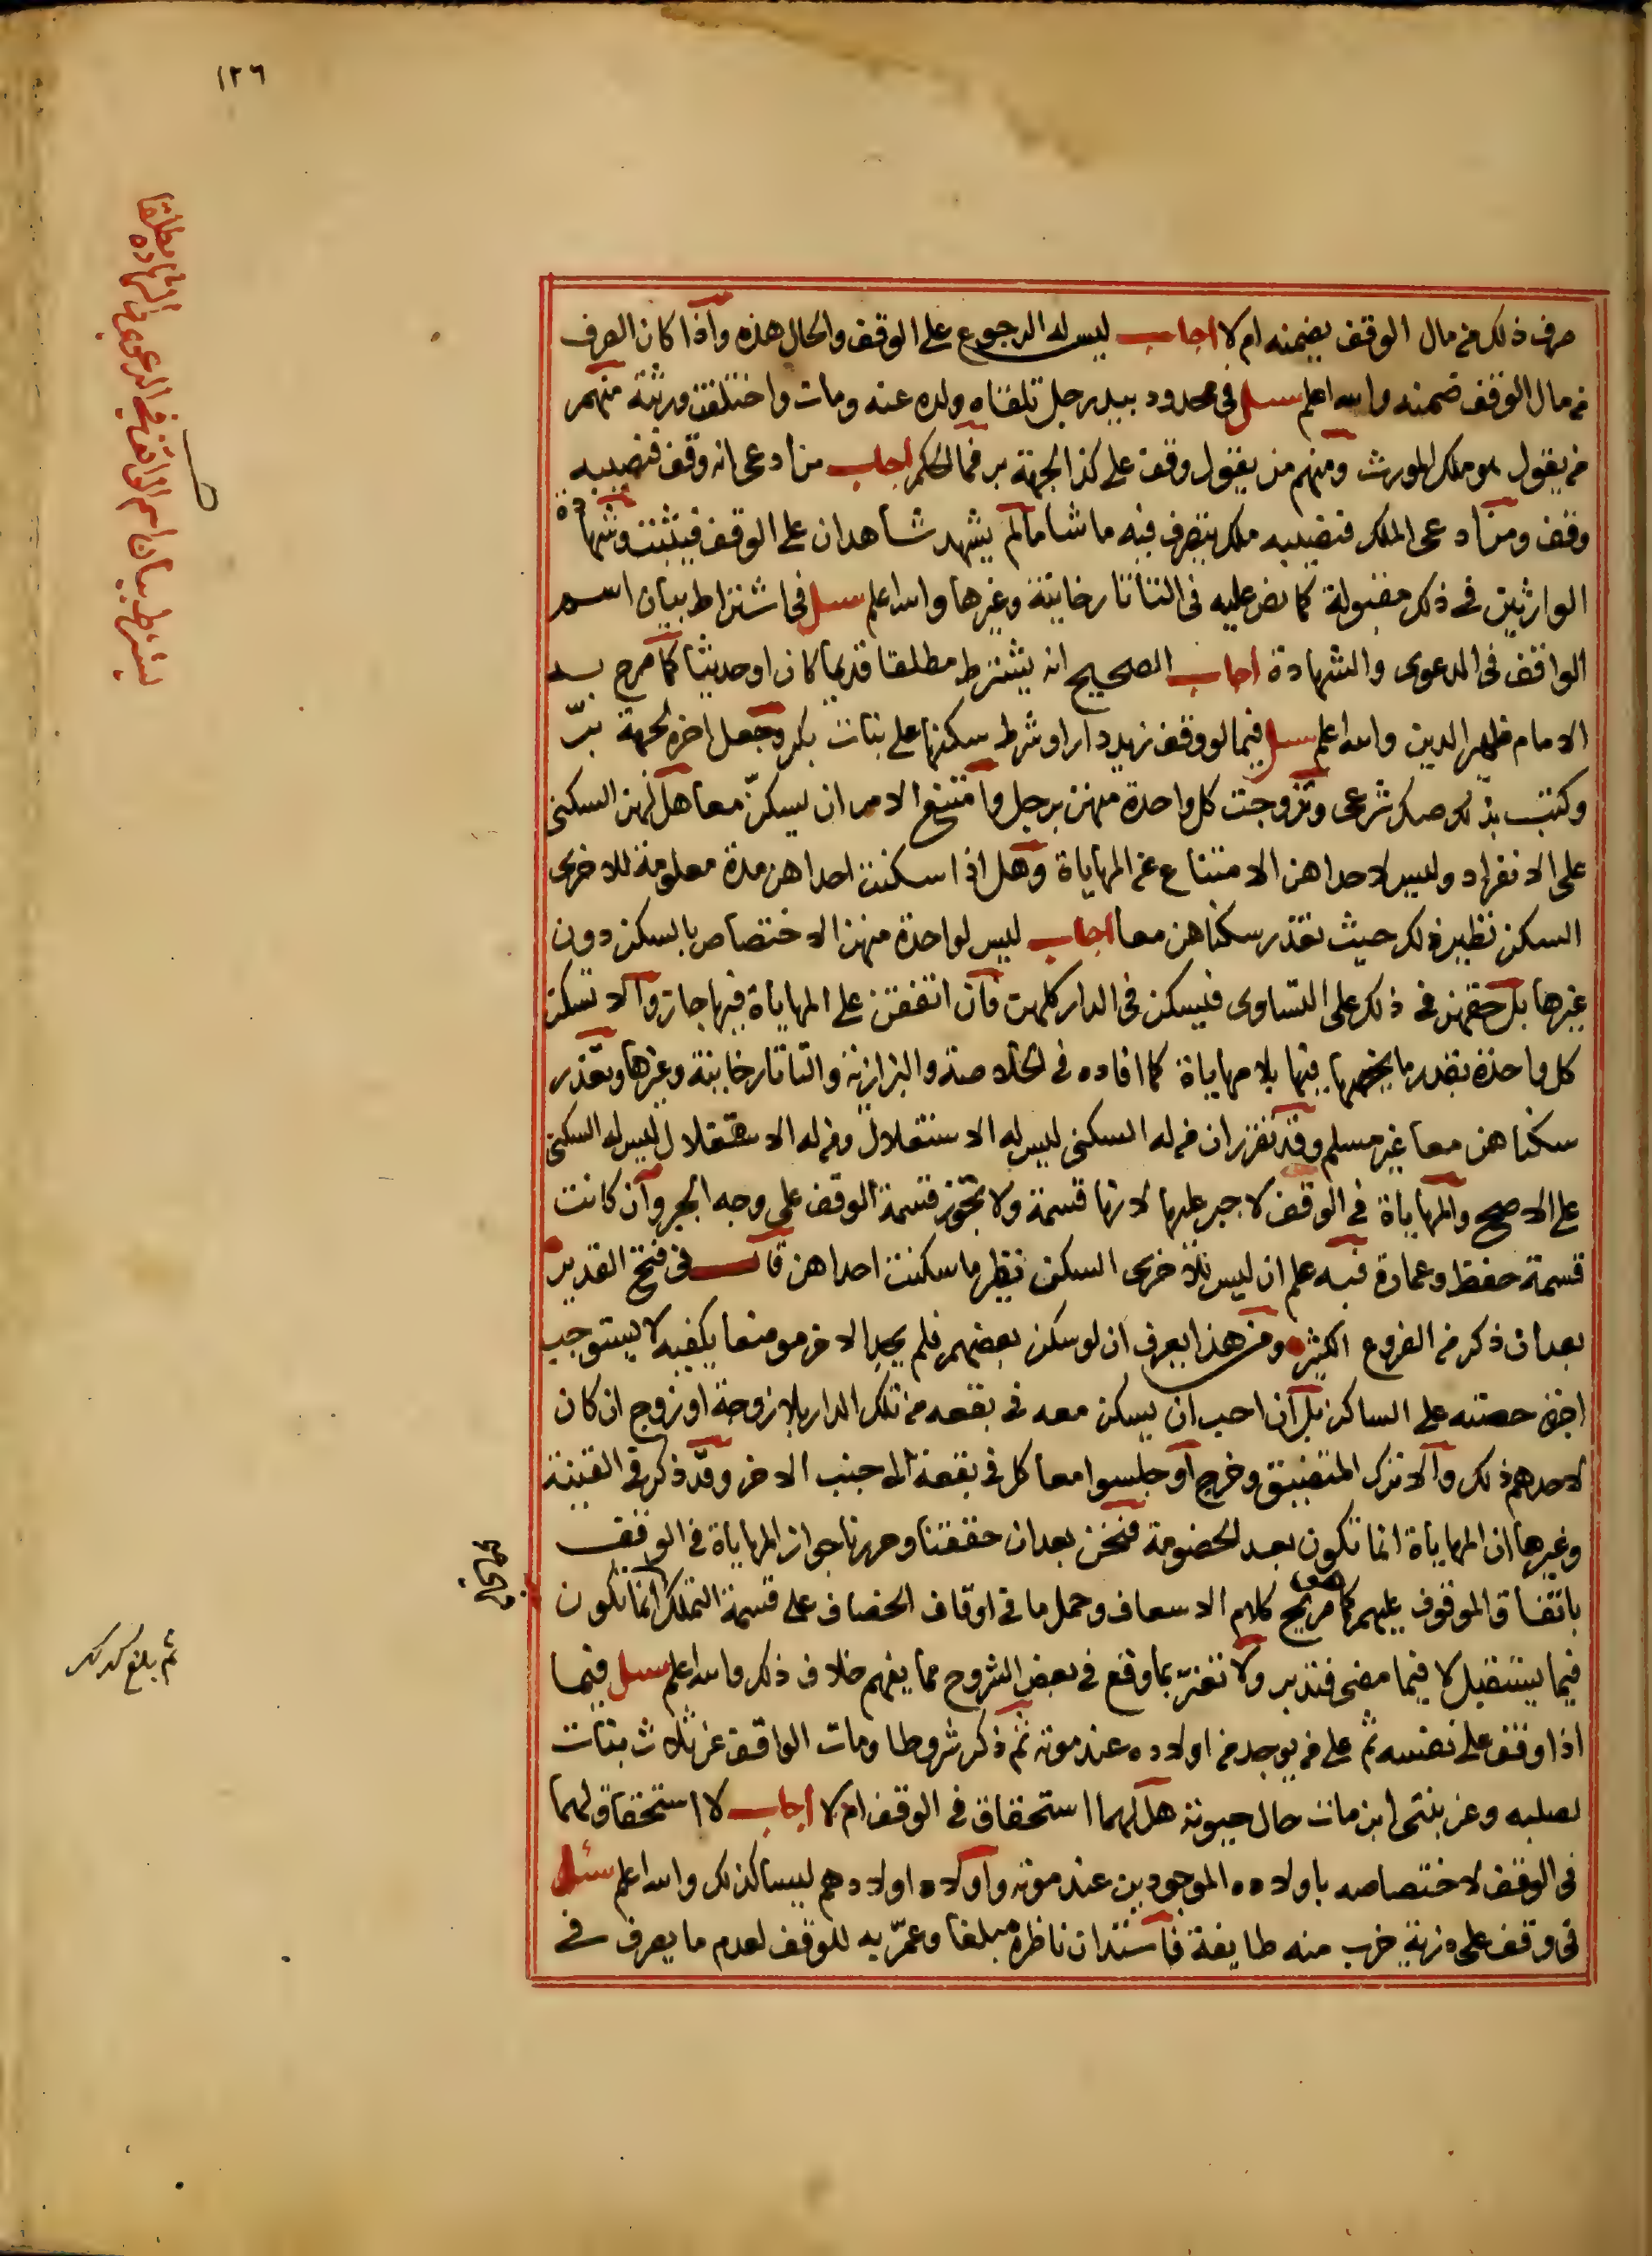 ١٢٦
يشترط بيان اسم الواقف في الدعوى والشهادة مطلقا
صرف ذلك من مال الوقف يضمنه ام لا اجاب ليس له الرجوع على الوقف والحال هذه واذا كان الصرف
من مال الوقف ضمنه والله اعلم سيل في محدود بيد رجل تلقاه ولده عنه ومات واختلفت ورثته منهم
من يقول هو ملك المورث ومنهم من يقول وقف على كذا الجهة بر فما الحكم اجاب من ادعى انه وقف فنصيبه
وقف ومن ادعى الملك فنصيبه ملك يتصرف فيه ما شا مالم يشهد شاهدان على الوقف فيثبت وشهادة
الوارثين في ذلك مقبولة كما نص عليه في التاتارخانية وغيرها والله اعلم سيل في اشتراط بيان اسم
الواقف في الدعوى والشهادة اجاب الصحيح انه يشترط مطلقا قديما كان او حديثا كما صرح به
الامام ظهير الدين والله اعلم سيل فيما لو وقف زيد دارا وشرط سكنها على بنات بكر وجعل اخره لجهة برّ
وكتب بذلك صك شرعي وتزوجت كل واحدة منهن برجل وامتنع الامر ان يسكنّ معا هل لهن السكنى
على الانفراد وليس لاحداهن الامتناع عن المهاياة وهل اذا سكنت احداهن مدة معلومة للاخرى
السكن نظير ذلك حيث تعذر سكناهن معا اجاب ليس لواحدة منهن الاختصاص بالسكن دون
غيرها بل حقهن في ذلك على التساوى فيسكن في الدار كلهن فان اتفقن على المهاياة فيها جاز والا تسكن
كل واحدة بقدر ما يخصها فيها بلا مهاياة كما افاده في الخلاصة والبزازية والتاتارخانية وغيرها وتعذر
سكناهن معا غير مسلم وقد تقرر ان من له السكنى ليس له الاستغلال ومن له الاستغلال ليس له السكنى
على الاصح والمهاياة في الوقف لا جبر عليها لانها قسمة ولا تجوز قسمة الوقف على وجه الجبر وان كانت
قسمة حفظ وعمارة فبه علم ان ليس للاخرى السكن نظير ما سكنت احداهن قال في فتح القدير
بعد ان ذكر من الفروع الكثير ومن هذا يعرف ان لو سكن بعضهم فلم يجد الاخر موضعا يكفيه لا يستوجب
اجرة حصته على الساكن بل ان احب ان يسكن معه في بقعه من تلك الدار بلا زوجة او زوج ان كان
لاحدهم ذلك والا ترك المتضيق وخرج او جلسوا معا كل في بقعة الى جنب الاخر وقد ذكر في القنية
وغيرها ان المهاياة انما تكون بعد الخصومة فنحن بعد ان حققنا وحررنا جواز المهاياة في الوقف
باتفاق الموقوف عليهم كما هو صريح كلام الاسعاف وحمل ما في اوقاف الخصاف على قسمة التملك انما تكون
فيما يستقبل لا فيما مضى فتدبر ولا تغترّ بما وقع في بعض الشروح مما يفهم خلاف ذلك والله اعلم سيل فيما
اذا وقف على نفسه ثم على من يوجد من اولاده عند موته ثم ذكر شروطا ومات الواقف عن ثلاث بنات
لصلبه وعن بنتى ابن مات حال حيوته هل لهما استحقاق في الوقف ام لا اجاب لا استحقاق لهما
في الوقف لاختصاصه باولاده الموجودين عند موته واولاد اولادهم ليسا كذلك والله اعلم سئل
في وقف على ذرية خرب منه طايفة فاستدان ناظره مبلغا وعمّر به للوقف لعدم ما يصرف في